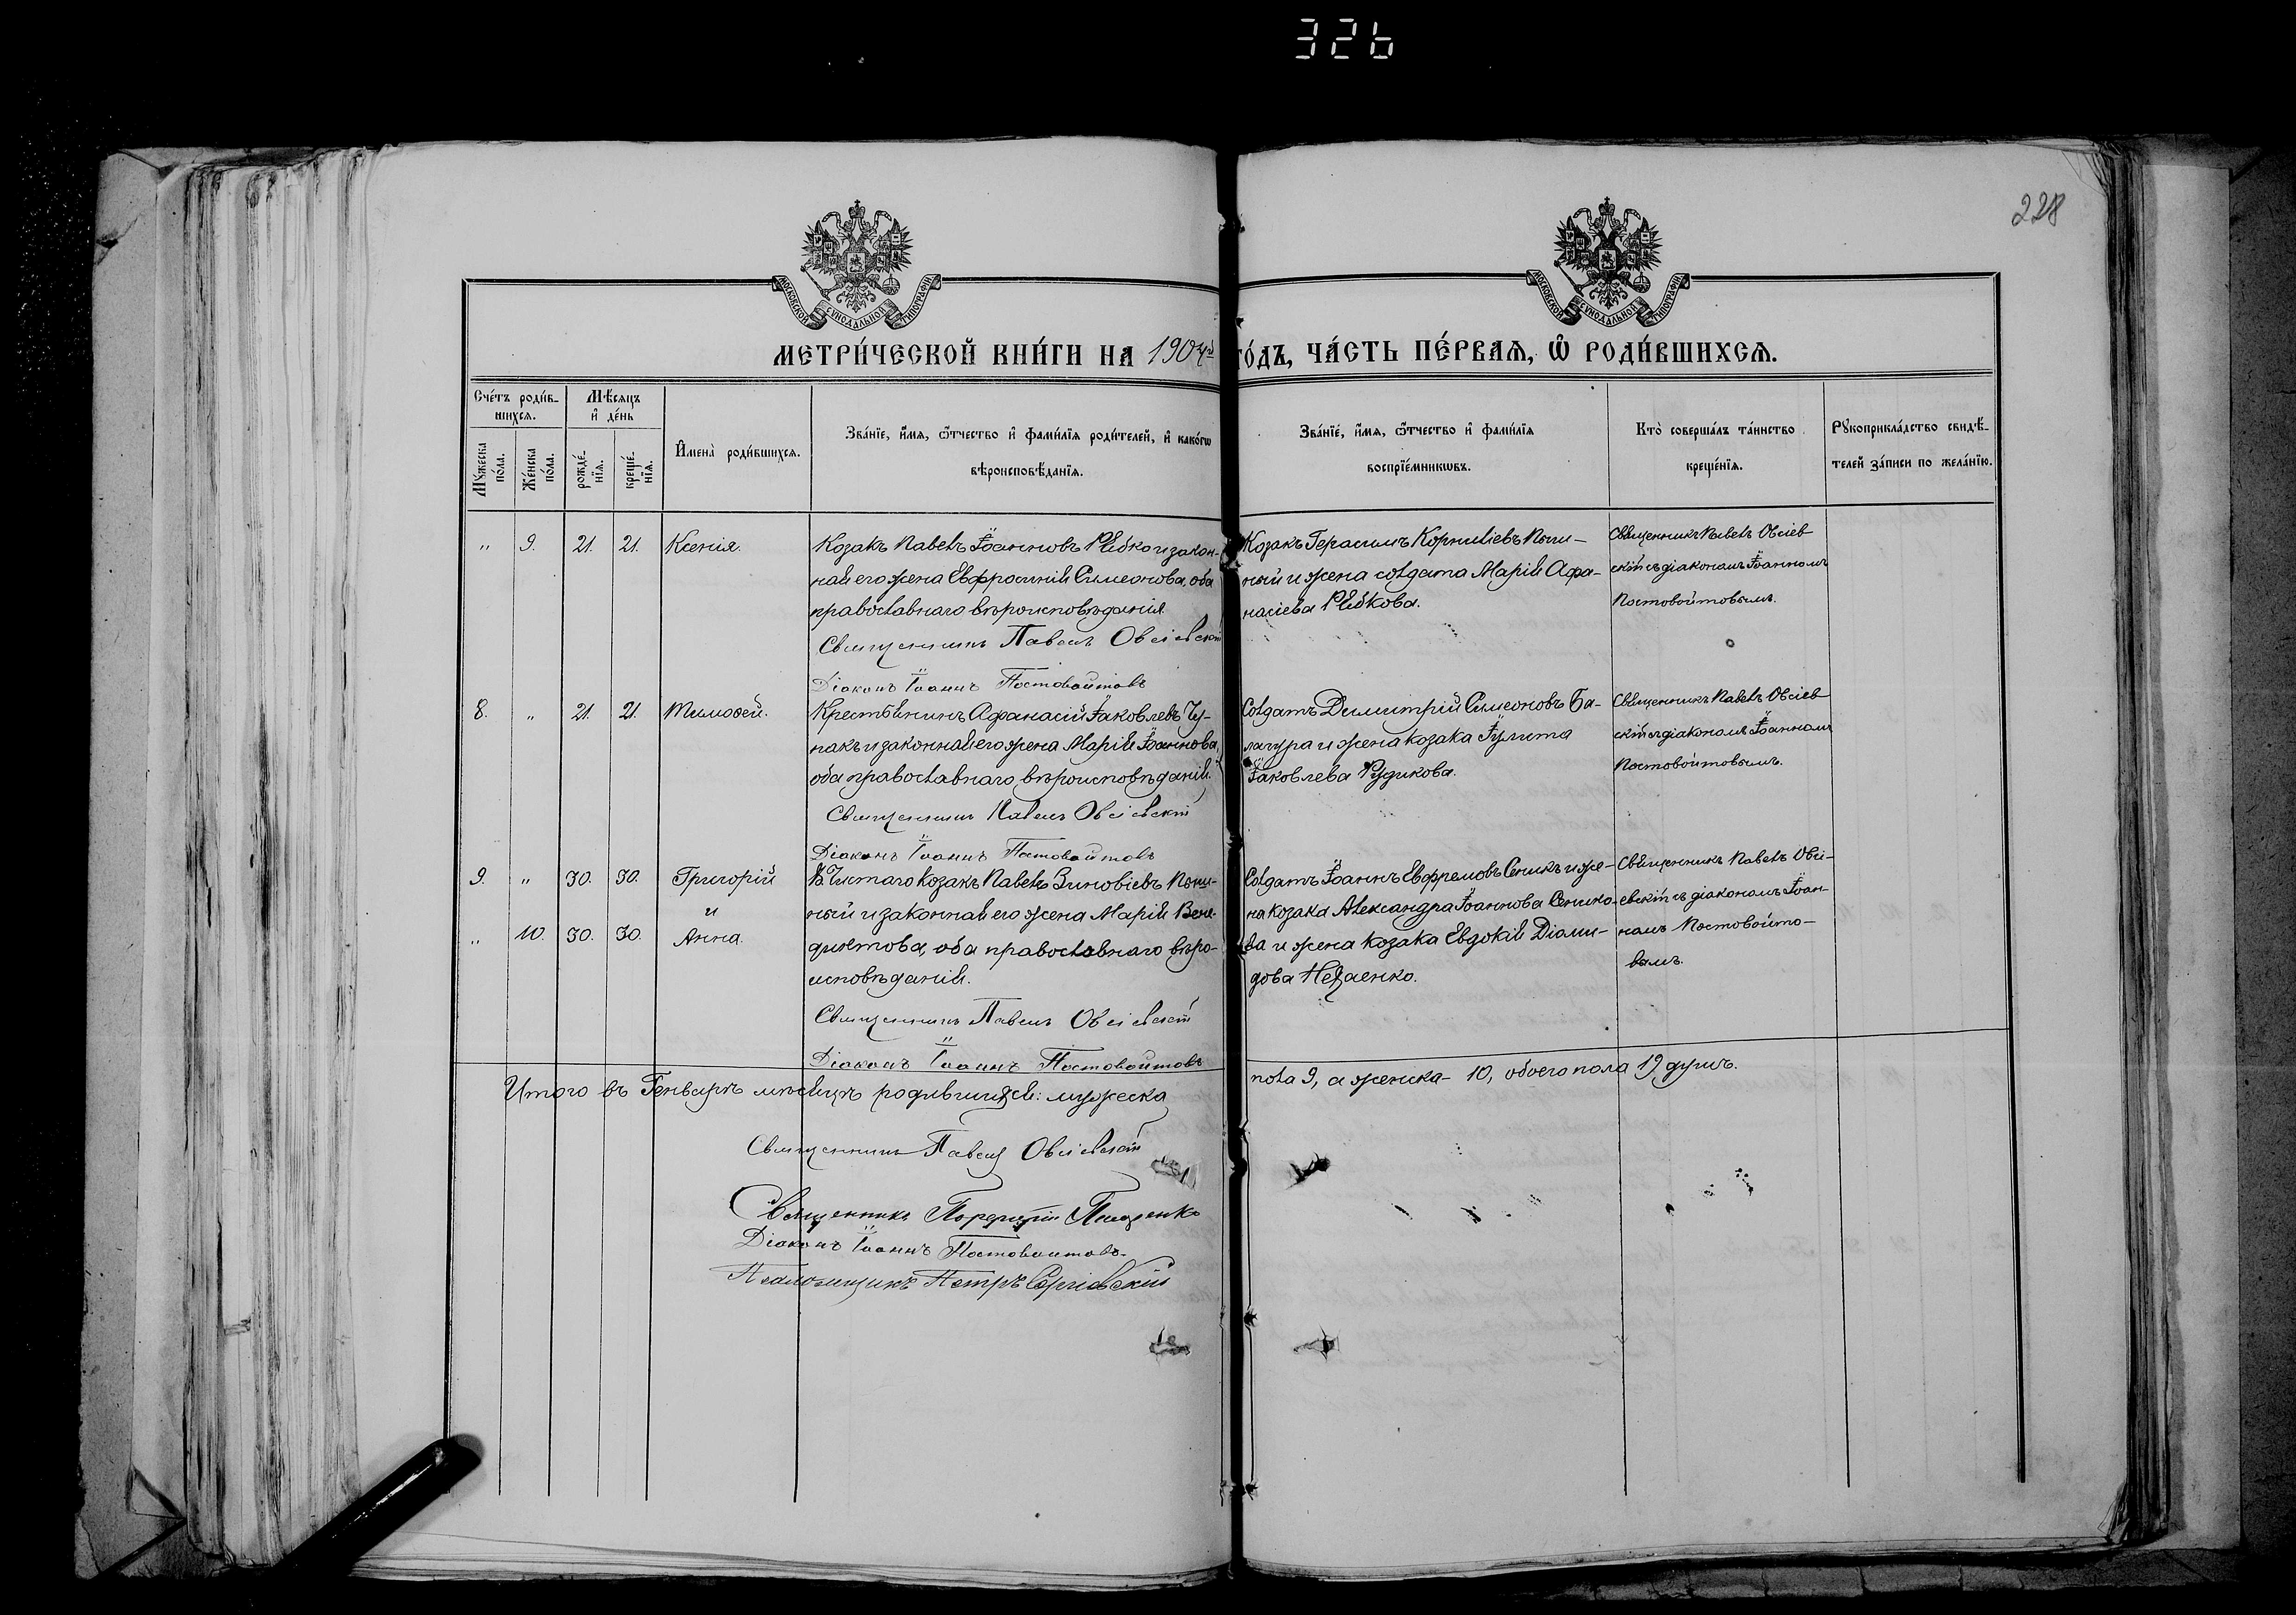 326
228
МОСКОВСКОЙ СѴНОДАЛЬНОЙ ТИПОГРАФІИ
МОСКОВСКОЙ СѴНОДАЛЬНОЙ ТИПОГРАФІИ
МЕТРИ́ЧЕСКОЙ КНИ́ГИ НА 1904й ГО́ДЪ, ЧА́СТЬ ПЕ́РВАѦ, Ѡ҆ РОДИ́ВШИХСѦ.
Сче́тъ роди́в-
шихсѧ.
Мѣ́сѧцъ
и҆ де́нь
Мꙋ́жеска по́ла.
Же́нска по́ла.
рожде́-
нїѧ.
креще́-
нїѧ.
И҆мена̀ роди́вшихсѧ.
Зва́нїе, и҆́мѧ, ѻ҆́тчество и҆ фами́лїѧ роди́телей, и҆ како́гѡ
вѣроисповѣ́данїѧ.
Зва́нїе, и҆́мѧ, ѻ҆́тчество и҆ фами́лїѧ
воспрїе́мникѡвъ.
Кто̀ соверша́лъ та́инство
креще́нїѧ.
Рꙋкоприкла́дство свидѣ́-
телей за́писи по жела́нїю.
" 9. 21. 21. Ксенія.
Козакъ Павелъ Іоанновъ Рябко и закон-
ная его жена Евфросинія Симеонова, оба
православнаго вѣроисповѣданія.
Священникъ Павелъ Овсіевскій
Діаконъ Іоаннъ Постовойтовъ
Козакъ Герасимъ Корниліевъ
ный и жена солдата Марія Афа-
насіева Рябкова.
Священникъ Павелъ Овсіев-
скій съ діакономъ Іоанномъ
Постовойтовымъ.
8. " 21. 21. Тимоѳей.
Крестьянинъ Афанасій Іаковлевъ Чу-
макъ и законная его жена Марія Іоаннова,
оба православнаго вѣроисповѣданія.
Священникъ Павелъ Овсіевскій
Діаконъ Іоаннъ Постовойтовъ
Солдатъ Димитрій Симеоновъ Ба-
лагура и жена козака Іулита
Іаковлева Рудикова.
Священникъ Павелъ Овсіев-
скій съ діакономъ Іоанномъ
Постовойтовымъ.
9. " 30. 30. Григорій
и
" 10. 30. 30. Анна.
козакъ Павелъ Зиновіевъ
ный и законная его жена Марія Вене-
диктова, оба православнаго вѣро-
исповѣданія.
Священникъ Павелъ Овсіевскій
Діаконъ Іоаннъ Постовойтовъ
Солдатъ Іоаннъ Евфремовъ Сеникъ и же-
на козака Александра Іоаннова Сенико-
ва и жена козака Евдокія Діоми-
дова
Священникъ Павелъ Овсі-
евскій съ діакономъ Іоан-
номъ Постовойто-
вымъ.
Итого въ Генварѣ мѣсяцѣ родившихся: мужеска
пола 9, а женска - 10, обоего пола 19 душъ.
Священникъ Павелъ Овсіевскій
Священникъ Порфирій
Діаконъ Іоаннъ Постовойтовъ.
Псаломщикъ Петръ Сергіевскій